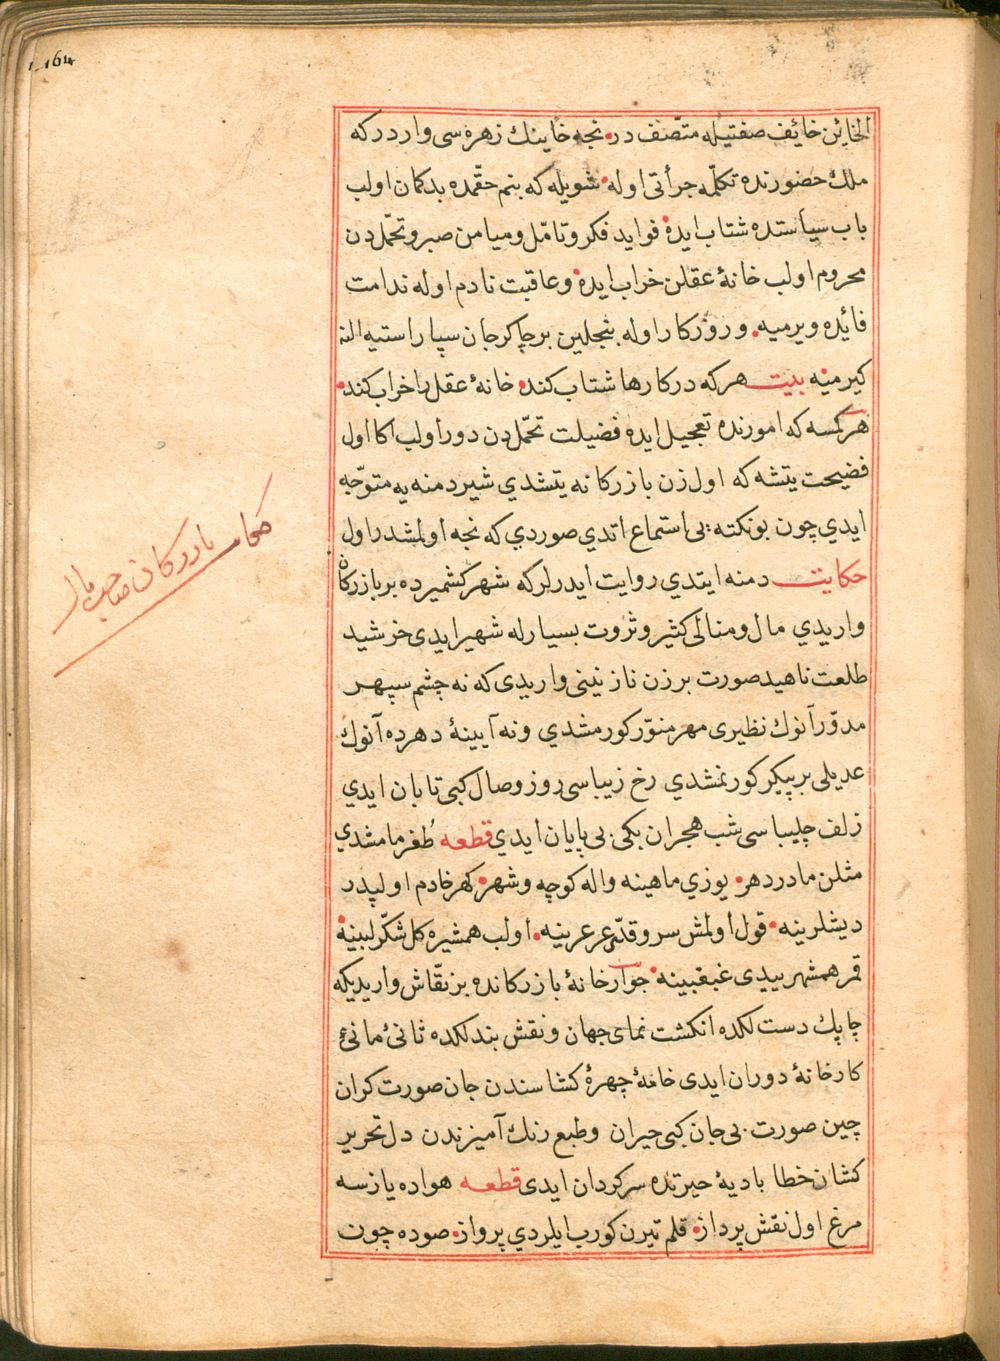 164
الخاین خایف صفتیله متّصف در نجه خاینك زهره سی وار درکه
ملك حضورنده تکلّمه جرأتی اوله شویله که بنم حقّمده بدکمان اولب
باب سیاستده شتاب ایده فواید فکر و تامّل ومیامن صبر و تحمّل دن
محروم اولب خانهٔ عقلن خراب ایده وعاقبت نادم اوله ندامت
فائده ویرمیه وروزکار اوله بنجلین برچاکرجان سپار استیه النه
کیرمیه بیت هر که در کارها شتاب کند خانهٔ عقل را خراب کند
هر کمسه که امورنده تعجیل ایده فضیلت تحمّل دن دور اولب اکا اول
فضیحت یتشه که اول زن بازرکانه یتشدی شیر دمنه یه متوجّه
ایدی چون بو نکته یی استماع اتدی صوردی که نجه اولمشدر اول
حکایت دمنه ایتدی روایت ایدرلر که شهر کشمیرده بر بازرکان
واریدی مال و منالی کثیر وثروت بسیارله شهیرایدی خرشید
طلعت ناهید صورت برزن نازنینی واریدی که نه چشم سپهر
مدوّر آنوك نظیری مهر منوّر کورمشدی ونه آیینهٔ دهرده آنوك
عدیلی بر پیکر کورنمشدی رخ زیباسی روز وصال کبی تابان ایدی
زلف چلیباسی شب هجران بکی بی پایان ایدی قطعه طغرمامشدی
مثلن مادر دهر یوزی ماهینه واله کوچه وشهر کهر خادم اولپدر
دیشلرینه قول اولمش سرو قدّ عرعرینه اولب همشیره کل شکّر لبینه
قمر همشهر بیدی غبغبینه جوار خانهٔ بازرکانده بر نقّاش واریدیکه
چاپك دست لکده انکشت نمای جهان ونقش بند لکده ثانئ مانئ
کارخانهٔ دوران ایدی خامهٔ چهرهٔ کشاسندن جان صورت کران
چین صورت بی جان کبی حیران وطبع رنك آمیزندن دل تحریر
کشان خطا بادیهٔ حیرتده سرکردان ایدی قطعه هواده یازسه
مرغ اول نقش پرداز قلم تیرن کورب ایلردی پرواز صوده چون
بازرکان صاحب مال